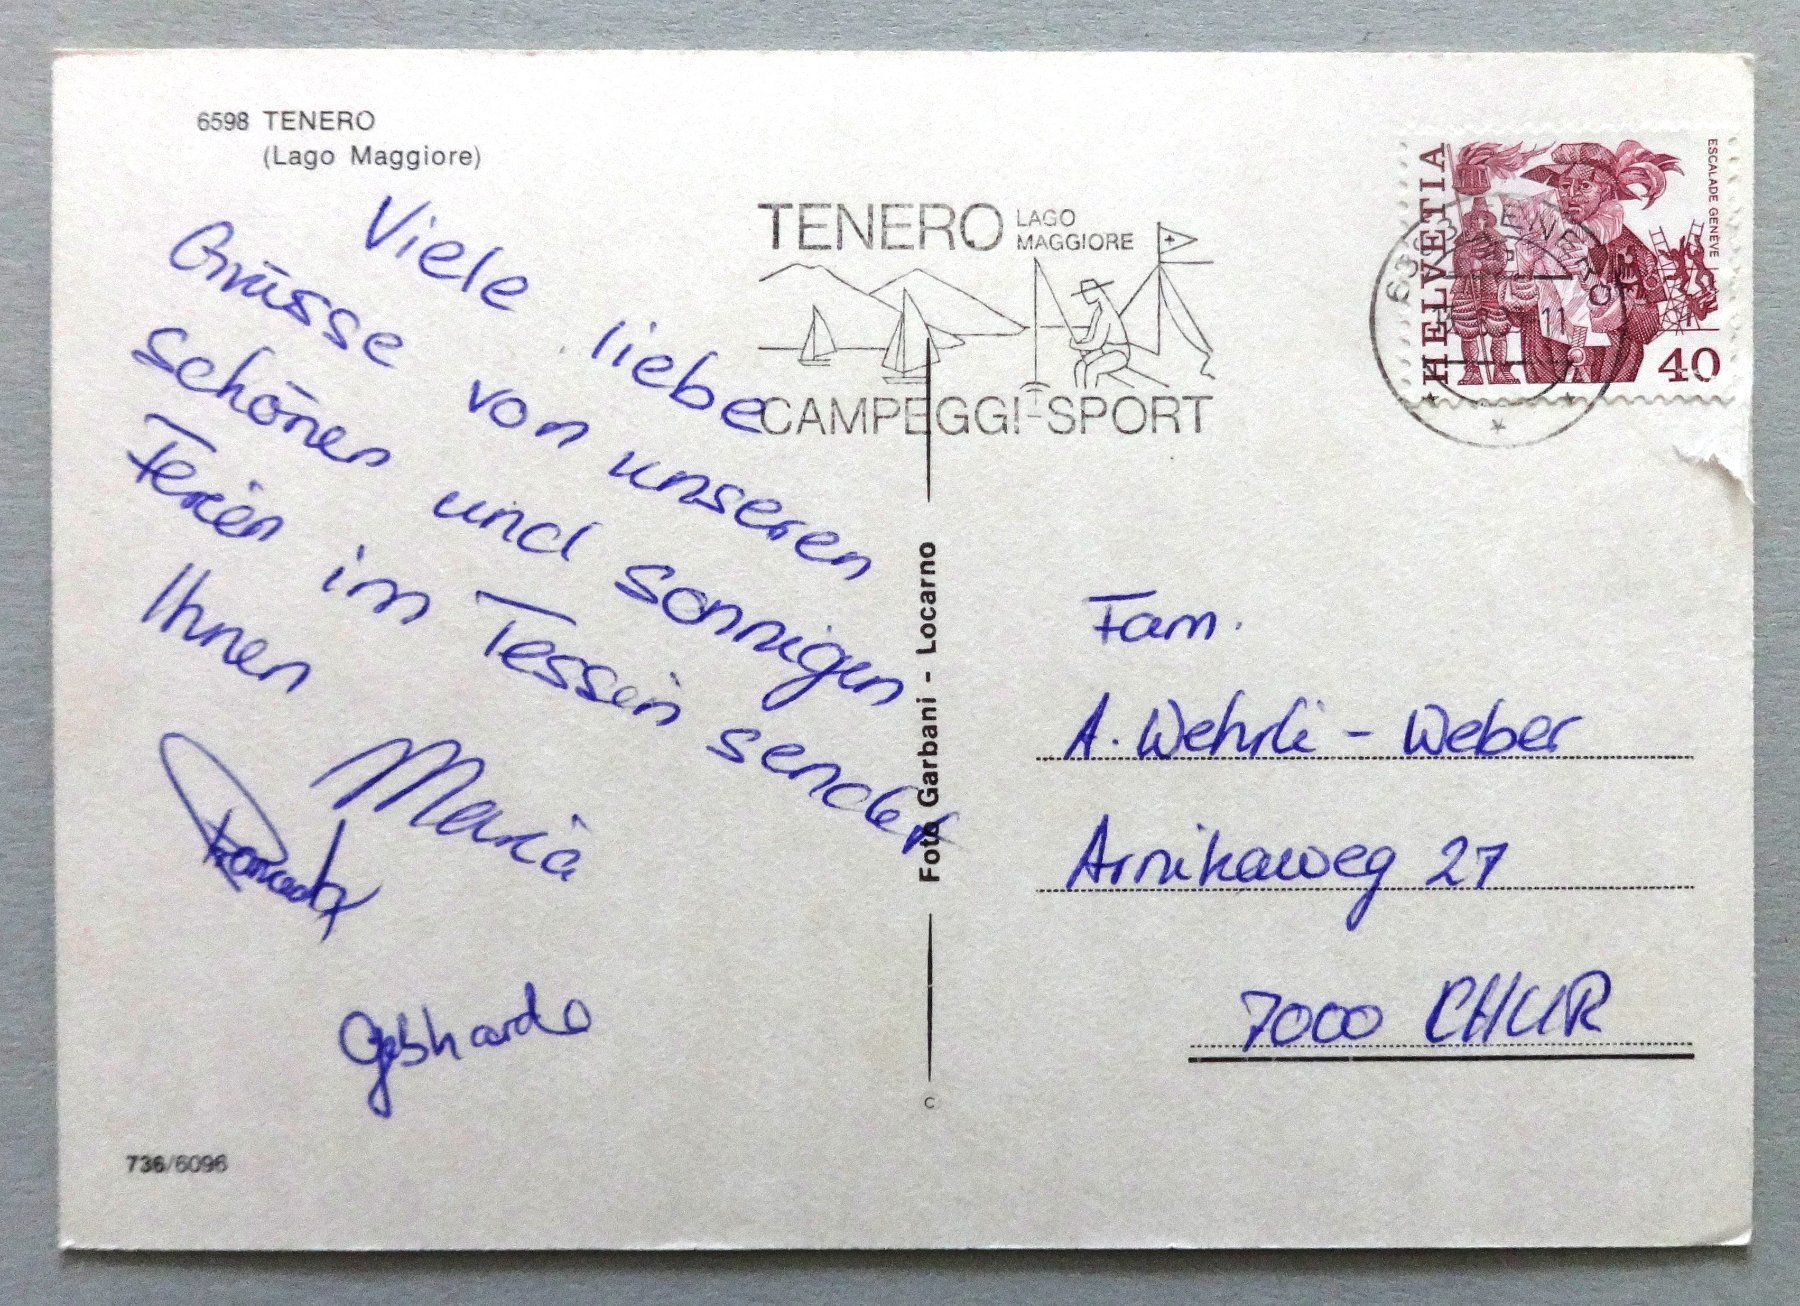 6598 TENERO
(Lago Maggiore)
Viele liebe
Grüsse von unseren
schönen und sonnigen
Ferien im Tessin sendet
Ihnen
Maria
736/6096
TENERO LAGO
MAGGIORE
CAMPEGGI-SPORT
Foto Garbani - Locarno
C
HELVETIA
ESCALADE GENÈVE
40
TENERO
11
Fam.
A. Wehrli - Weber
Arnikaweg 27
7000 CHUR